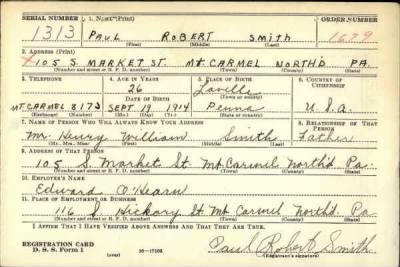 SERIAL NUMBER 1. NAME (Print) ORDER NUMBER
1313 PAUL ROBERT SMITH 1679
(First) (Middle) (Last)
2. ADDRESS (Print)
105 S. MARKET ST. MT. CARMEL NORTH'D PA.
(Number and street or R. F. D. number) (Town) (County) (State)
3. TELEPHONE 4. AGE IN YEARS 5. PLACE OF BIRTH 6. COUNTRY OF CITIZENSHIP
26 Lavelle
DATE OF BIRTH (Town or county)
MT. CARMEL 817J SEPT 19 1914 Penna U.S.A
(Exchange) (Number) (Mo.) (Day) (Yr.) (State or country)
7. NAME OF PERSON WHO WILL ALWAYS KNOW YOUR ADDRESS 8. RELATIONSHIP OF THAT PERSON
Mr. Henry William Smith Father
(Mr., Mrs., Miss) (First) (Middle) (Last)
9. ADDRESS OF THAT PERSON
105 S. Market St Mt Carmel North'd. Pa.
(Number and street or R. F. D. number) (Town) (County) (State)
10. EMPLOYER'S NAME
Edward O'Hearn
11. PLACE OF EMPLOYMENT OR BUSINESS
116 S Hickory St Mt Carmel North'd. Pa
(Number and street or R. F. D. number) (Town) (County) (State)
I AFFIRM THAT I HAVE VERIFIED ABOVE ANSWERS AND THAT THEY ARE TRUE.
REGISTRATION CARD
D. S. S. Form 1 (over) 16—17105 Paul Robert Smith
(Registrant's signature)